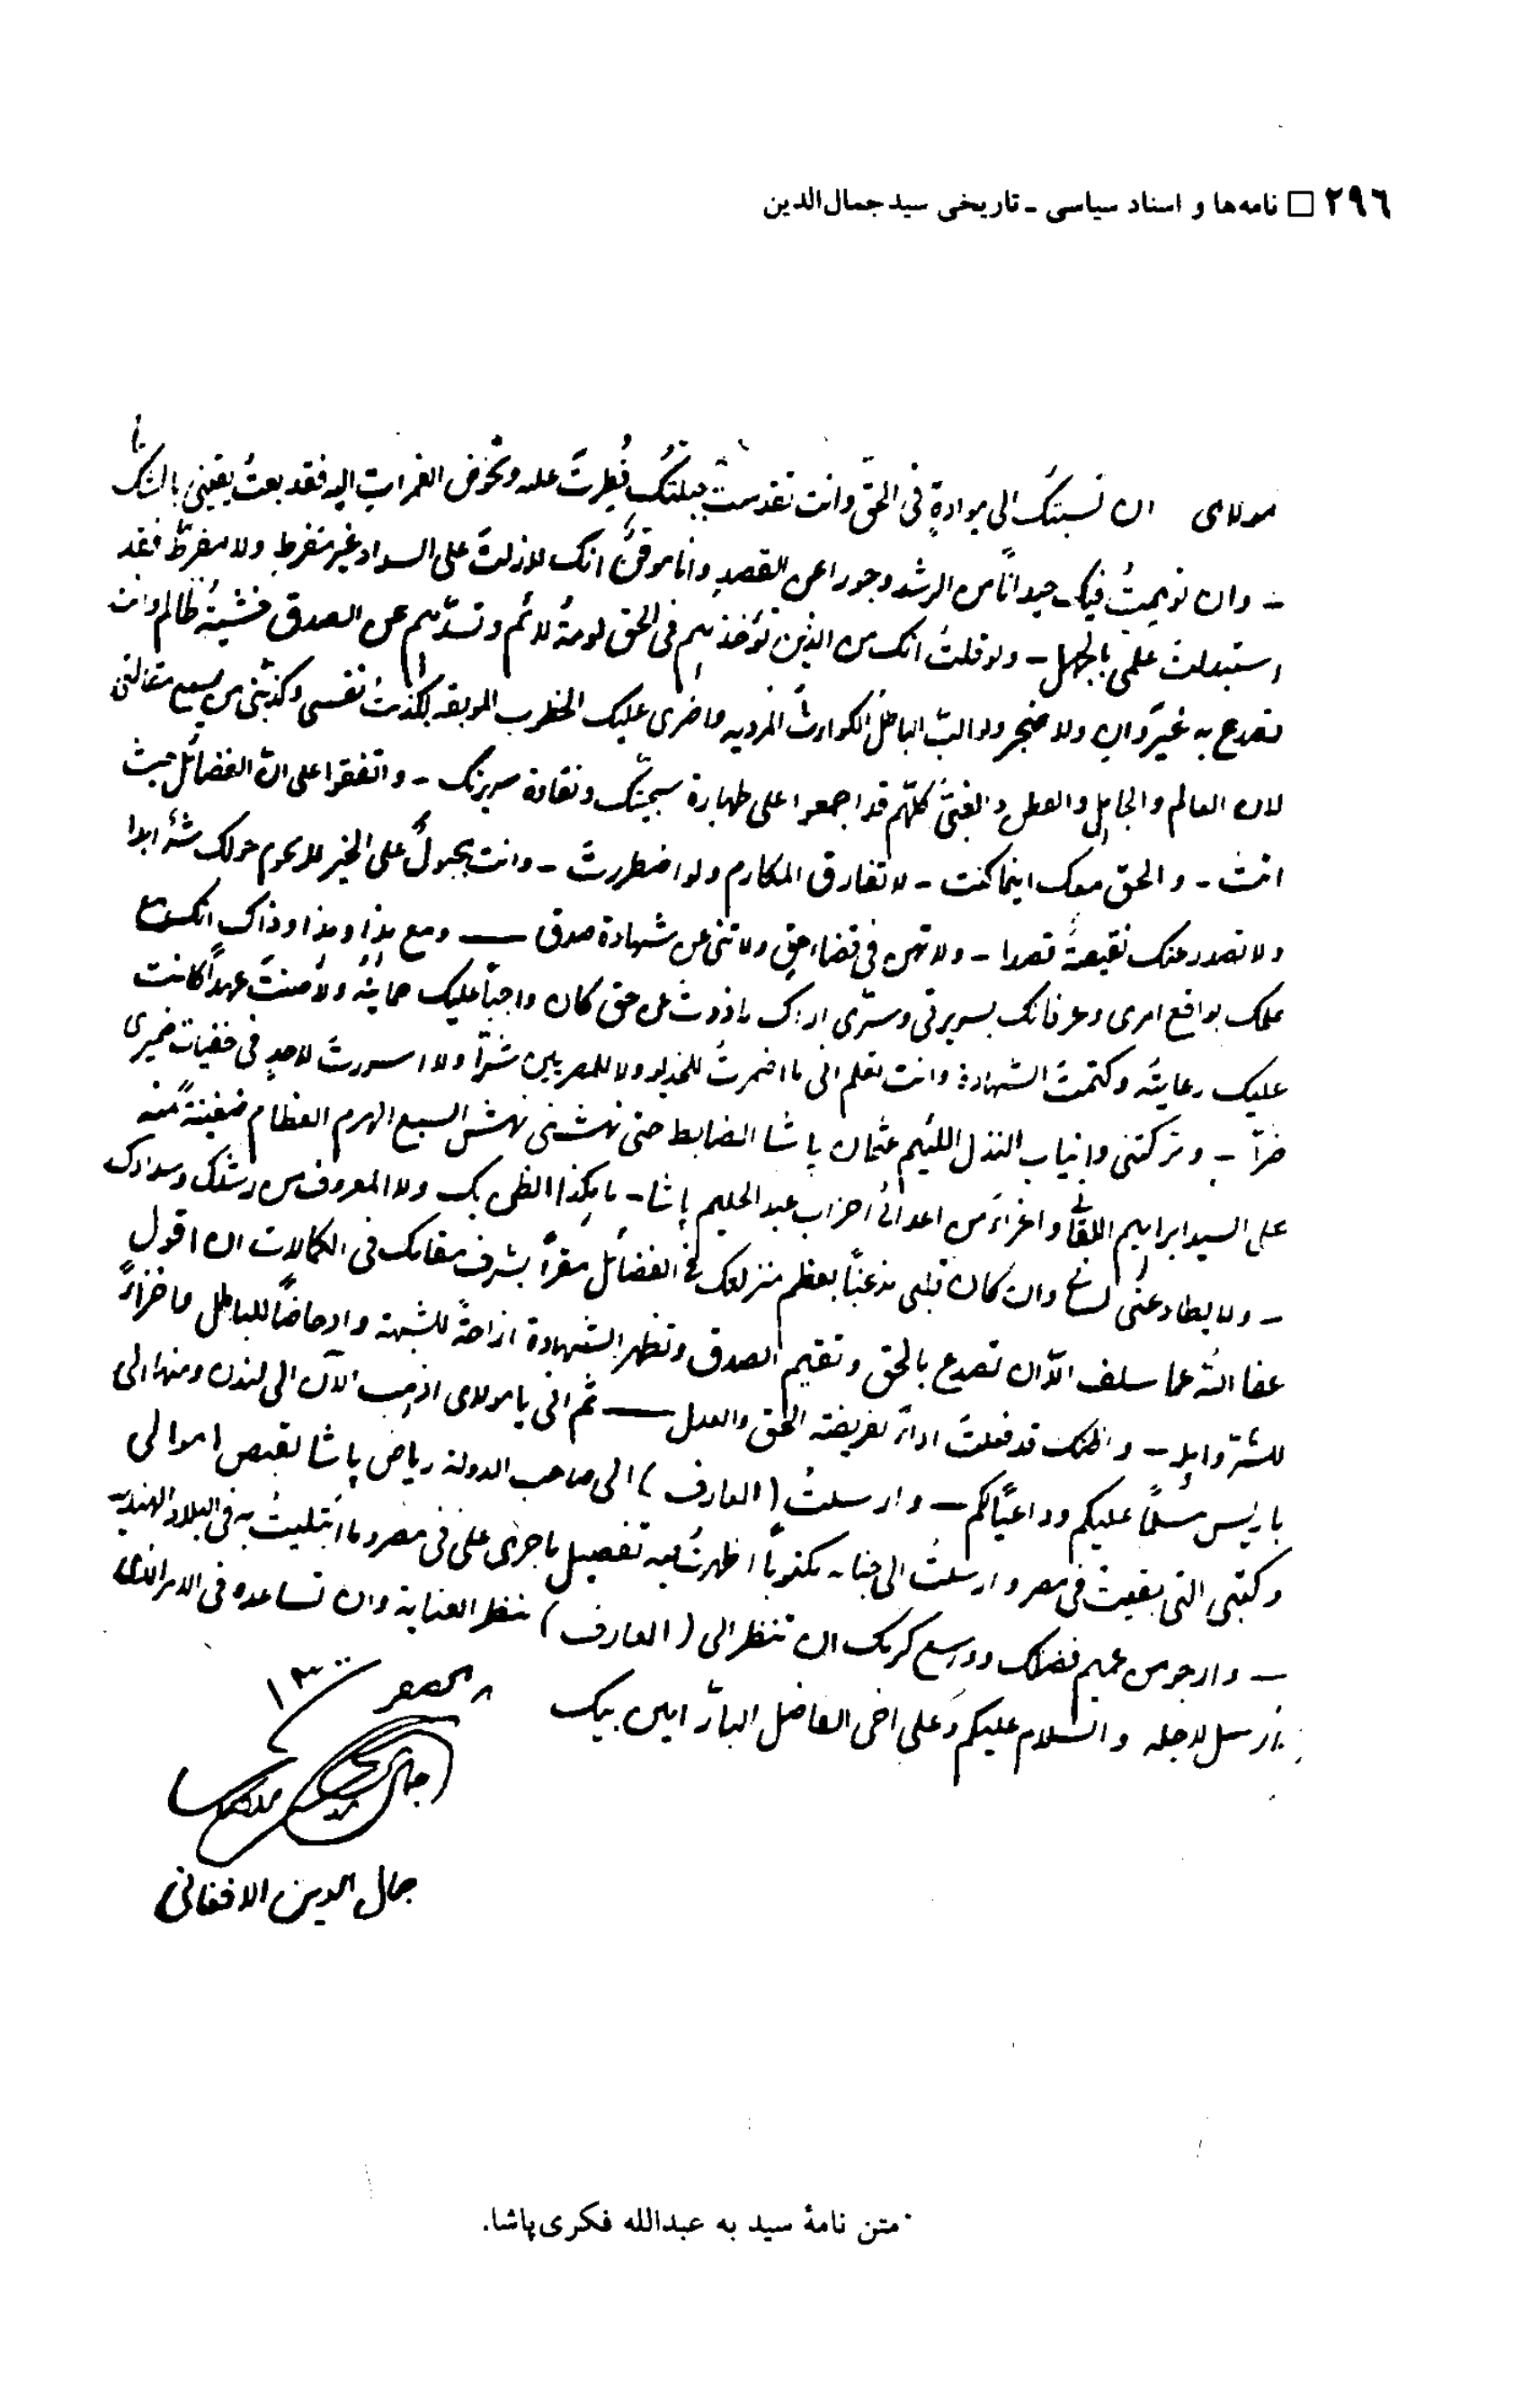 ٢٩٦ □ نامه‌ها و اسناد سیاسی ـ تاریخی سید جمال‌الدین
مولای ان نسبتک الی موادة فی الحق وانت تقدست جبلتک فطرت علیه وتخوض الغمرات الیه فقد بعت یقینی بالشک
ـ وان توهمت فیک حیداناً من الرشد وجورا عن القصد وانا موقن انک لازلت علی السداد غیر مفرط ولا مفرّط فقد
استبدلت علمی بالجهل ـ ولو قلت انک من الذین تؤخذهم فی الحق لومة لائم وتصدّهم عن الصدق خشیة ظالم وانت
تصدع به غیر وانٍ ولا ضجر ولو البّ الباطل الکوارث المردیه واضری علیک الخطوب الموبقه لکذبت نفسی وکذبنی من یسمع مقالتی
لان العالم والجاهل والفطن والغبیّ کلهم قد اجمعوا علی طهارة سجیتک ونقاوة سریرتک ـ واتفقوا علی انّ الفضائل حیث
انت ـ والحق معک اینما کنت ـ لا تفارق المکارم ولو اضطررت ـ وانت مجبول علی الخیر لا یحوم حولک شرّ ابدا
ولا تصدر عنک نقیصة قصدا ـ ولا تهن فی قضاء حق ولا تنی عن شهادة صدق ـ ومع هذا وهذا وذاک انک مع
علمک بواقع امری وعرفانک بسریرتی وسرّی اراک ما ذدت عن حق کان واجباً علیک حمایته ولا صنت عهداً کانت
علیک رعایته وکتمت الشهادة وانت تعلم انی ما اضمرت للخدیو ولا للمصریین شرّاً ولا اسررت لاحدٍ فی خفیات ضمیری
ضرّاً ـ وترکتنی وانیاب النذل اللئیم عثمان پاشا الضابط حتی نهشنی نهش السبع الهرم العظام ضغینةً منه
علی السید ابراهیم اللقانی واغراءً من اعدائی احزاب عبد الحلیم پاشا ـ ما هکذا الظن بک ولا المعروف من رشدک وسدادک
ـ ولا یطاوعنی لسانی وان کان قلبی مذعناً بعظم منزلتک فی الفضائل مقراً بشرف مقامک فی الکمالات ان اقول
عفا الله عما سلف الّا ان تصدع بالحق وتقیم الصدق وتظهر الشهادة ازاحةً للشبهة وادحاضاً للباطل واخزاءً
للشرّ واهله ـ واظنک قد فعلت اداءً لفریضة الحق والعدل ـ ثم انی یا مولای اذهب الآن الی لندن ومنها الی
باریس مسلّماً علیکم وداعیاً لکم ـ وارسلت (العارف) الی صاحب الدولة ریاض پاشا لقبض اموالی
وکتبی التی بقیت فی مصر وارسلت الی جنابه مکتوباً اظهرت فیه تفصیل ما جری علیّ فی مصر وما ابتلیت به فی البلاد الهندیة
ـ وارجو من عمیم فضلک ووسیع کرمک ان تنظر الی (العارف) بنظر العنایة وان تساعده فی الامر الذی
ارسل لاجله والسلام علیکم وعلی اخی الفاضل البارّ امین بیک
٨ صفر ١٣٠٠
جمال الدین الافغانی
متن نامهٔ سید به عبدالله فکری پاشا.